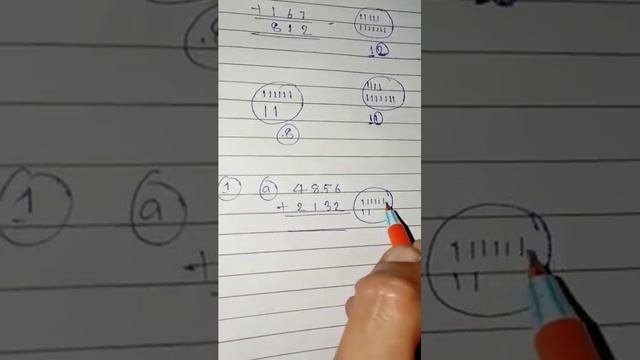 +167
812
12
.8
11
1 a 4856
+2132